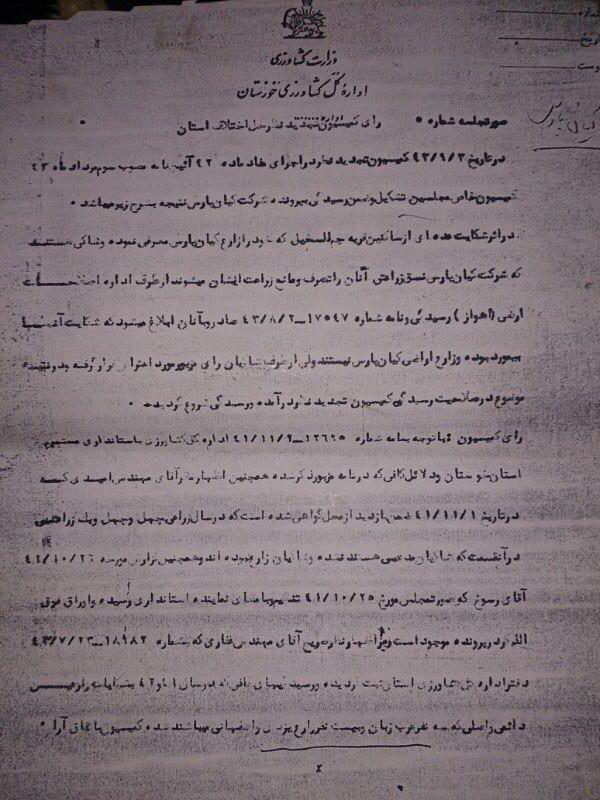 وزارت کشاورزی
اداره کل کشاورزی خوزستان
صورتجلسه شماره رای کمیسیون تجدید نظر حل اختلاف استان
در تاریخ ۴۳/۹/۳ کمیسیون تجدید نظر در اجرای مفاد ماده ۴۲ آئین نامه مصوب سوم مرداد ماه ۴۳
کمیسیون خاص مجلسین تشکیل و ضمن رسیدگی بپرونده شرکت کیان پارس نتیجه بشرح زیر میباشد .
در اثر شکایت عده ای از ساکنین قریه که خود را زارع کیان پارس معرفی نموده و شاکی هستند
که شرکت کیان پارس نسق زراعتی آنان را تصرف و مانع زراعت ایشان میشوند از طرف اداره اصلاحات
ارضی (اهواز) رسیدگی و نامه شماره ۱۷۵۴۷ــ۴۳/۸/۲ صادر و بآنان ابلاغ میشود که شکایت آنها
بیمورد بوده و زارع اراضی کیان پارس نیستند ولی از طرف شاکیان رای مزبور مورد اعتراض قرار گرفته و در نتیجه
موضوع در صلاحیت رسیدگی کمیسیون تجدید نظر در آمده و رسیدگی شروع گردید .
رای کمیسیون : با توجه بنامه شماره ۱۲۶۹۵ــ۴۱/۱۱/۹ اداره کل کشاورزی باستانداری
استان خوزستان و دلائل کافی که در نامه مزبور ذکر شده همچنین اظهار نظر آقای مهندس که
در تاریخ ۴۱/۱۱/۱ ضمن بازدید از محل گواهی شده است که در سال زراعی چهل و چهل و یک زراعتی
در آنقسمت که شاکیان مدعی هستند نشده و شاکیان زارع نبوده اند و همچنین گزارش مورخه ۴۱/۱۰/۲۶
آقای رسوخ که صورتمجلس مورخ ۴۱/۱۰/۲۵ تنظیم و بامضای نماینده استانداری رسیده و اوراق فوق
الذکر در پرونده موجود است و نیز اظهار نظر صریح آقای مهندس غفاری که بشماره ۱۸۹۸۲ــ۴۳/۷/۲۳
دفتر اداره کل کشاورزی استان ثبت گردیده و رسید که در سال ۴۱ و ۴۲
که سه نفر عرب زبان و بیست نفر زارع یزدی و اصفهانی میباشند شده کمیسیون باتفاق آرا .